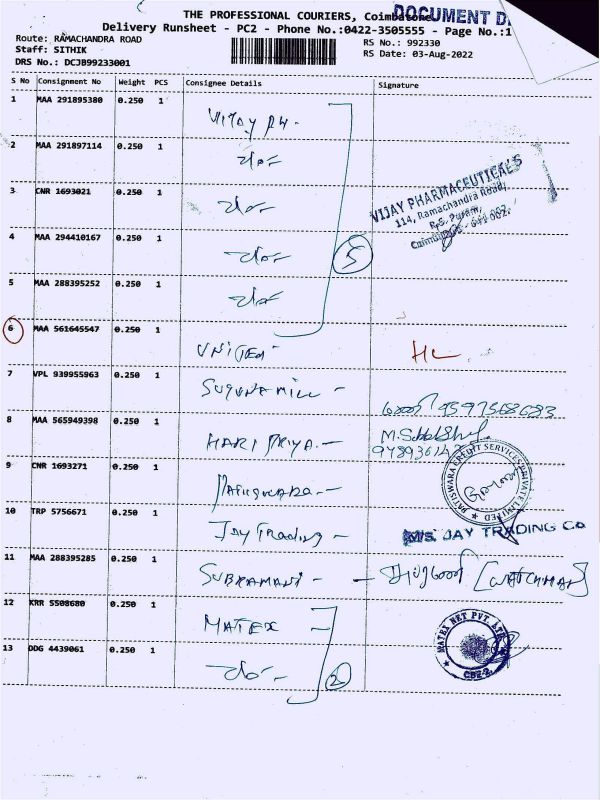 THE PROFESSIONAL COURIERS, Coimbatore
DOCUMENT
Delivery Runsheet - PC2 - Phone No.:0422-3505555 - Page No.:1
Route: RAMACHANDRA ROAD
RS No.: 992330
Staff: SITHIK
RS Date: 03-Aug-2022
DRS No.: DCJB99233001
S No Consignment No Weight PCS Consignee Details Signature
1 MAA 291895380 0.250 1
VIJAY PH.
2 MAA 291897114 0.250 1
3 CNR 1693021 0.250 1
VIJAY PHARMACEUTICALS
114, Ramachandra Road,
R.S. Puram,
4 MAA 294410167 0.250 1
5
5 MAA 288395252 0.250 1
6 MAA 561645547 0.250 1
UNITED HL
7 VPL 939955963 0.250 1
SUGUNA MILL -
8 MAA 565949398 0.250 1
HARI PRIYA. -
9 CNR 1693271 0.250 1
PATISWARA CREDIT SERVICES PRIVATE LIMITED
10 TRP 5756671 0.250 1
Jay Trading - M/S. JAY TRADING CO
11 MAA 288395285 0.250 1
SUBRAMANI - [WATCHMAN]
12 KRR 5508680 0.250 1
MATEX
MATEX NET PVT. LTD
CBE-2
13 DDG 4439061 0.250 1
2